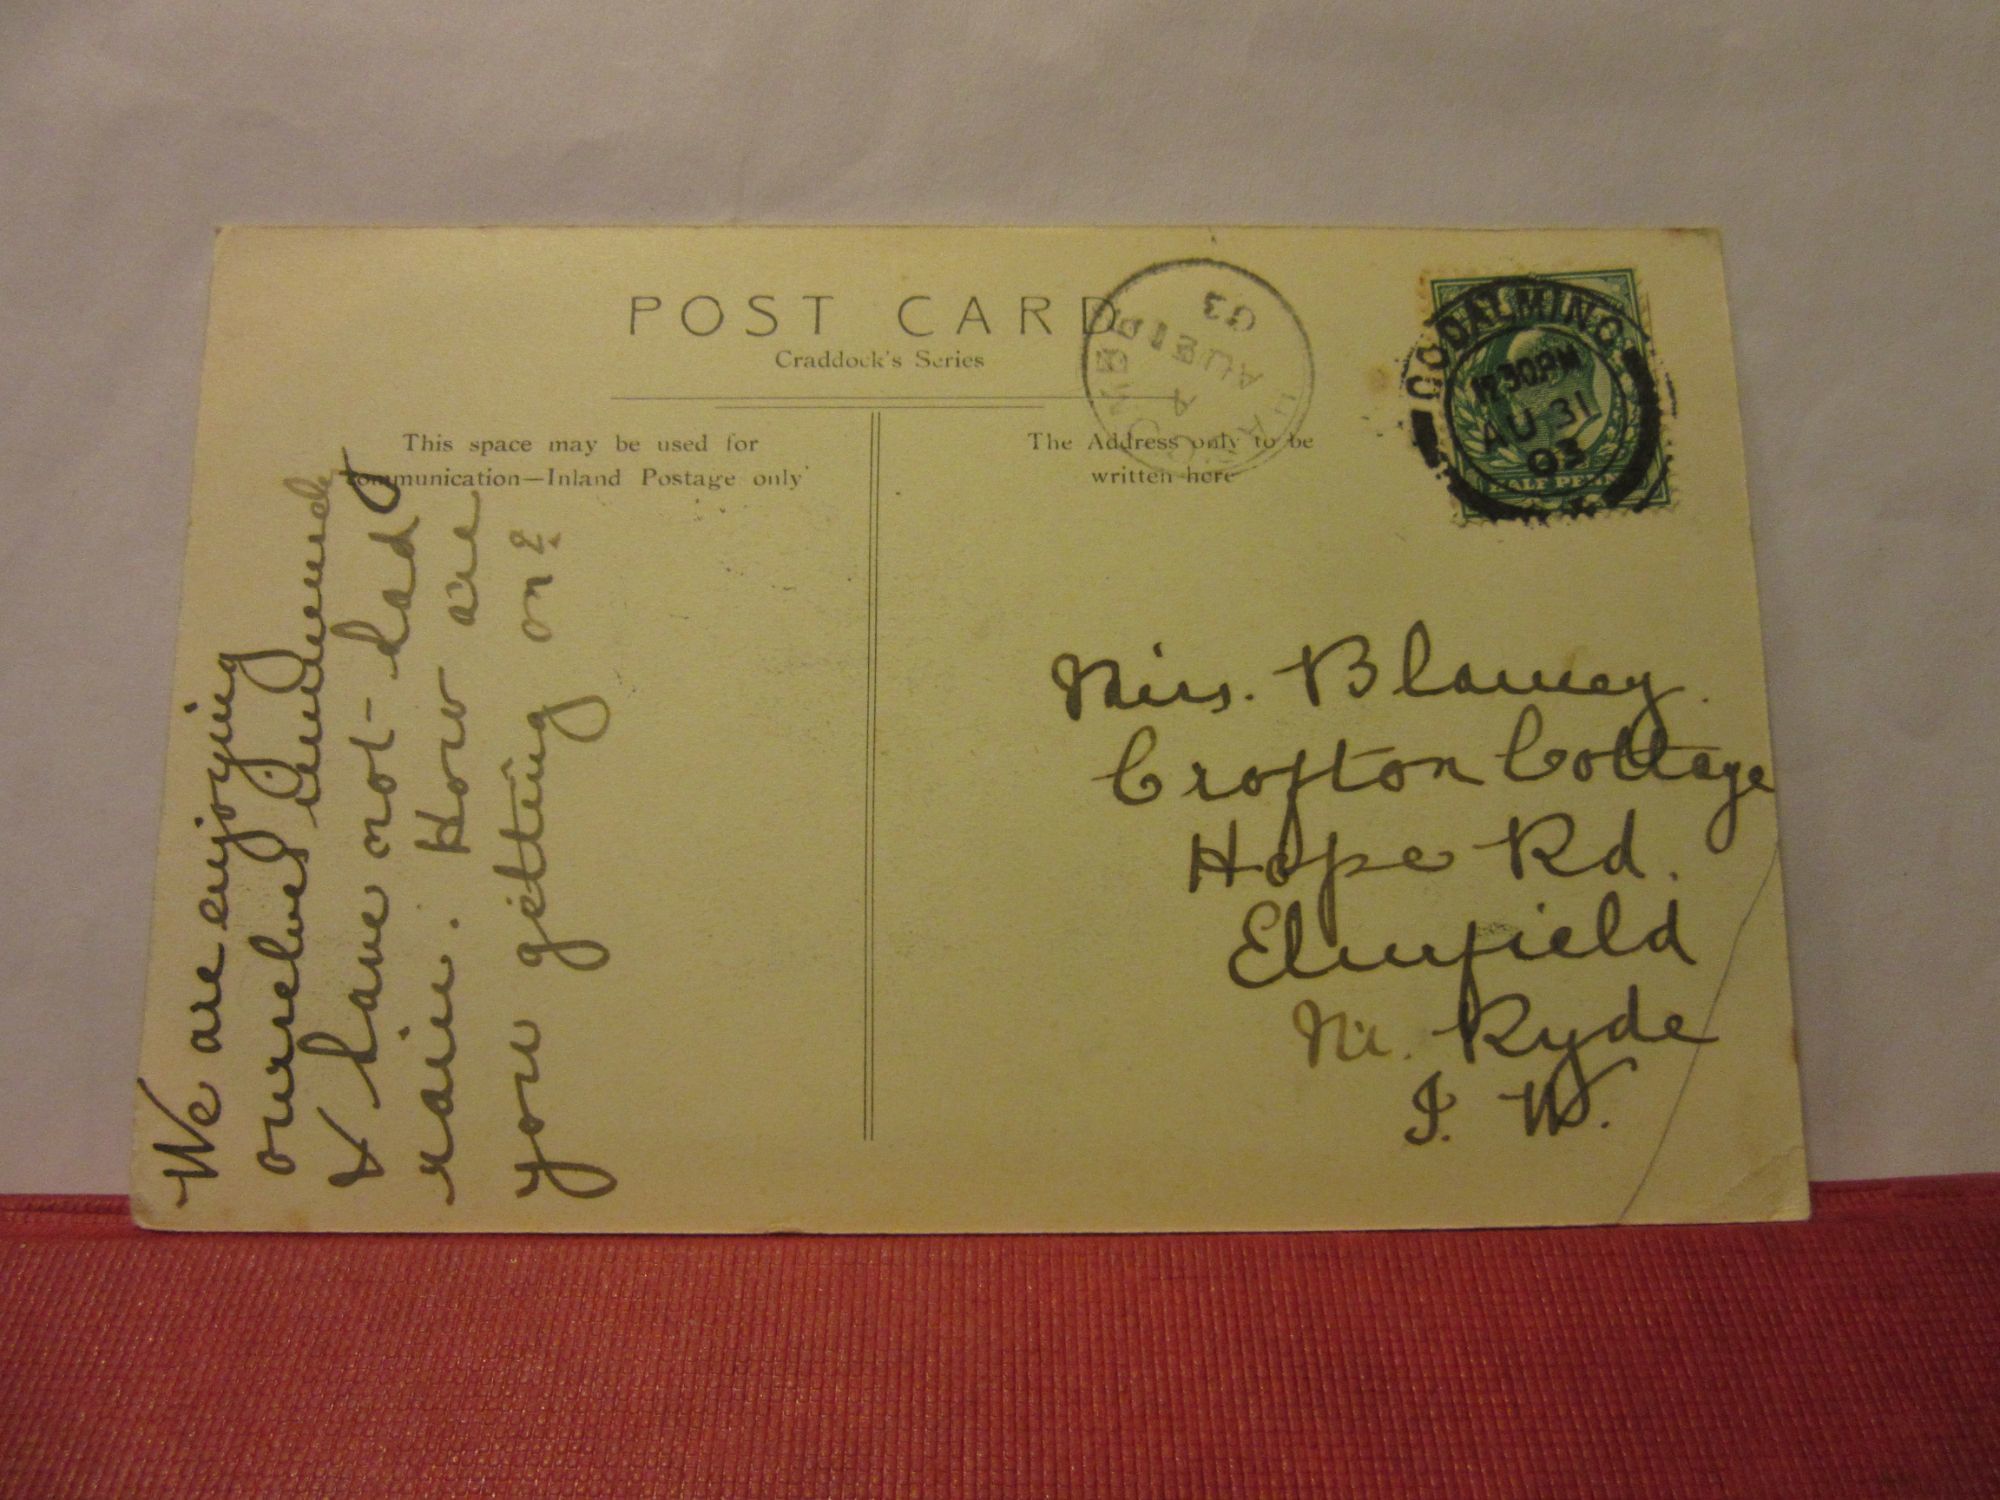 POST CARD
Craddock's Series
This space may be used for
communication—Inland Postage only
The Address only to be
written here
GODALMING
12.30PM
AU 31
03
HALF PENNY
A
AU 31
03
We are enjoying
ourselves immensely
& have not had
rain. How are
you getting on?
Mrs. Blamey.
Crofton Cottage
Hope Rd.
Elmfield
Nr. Ryde
I. W.